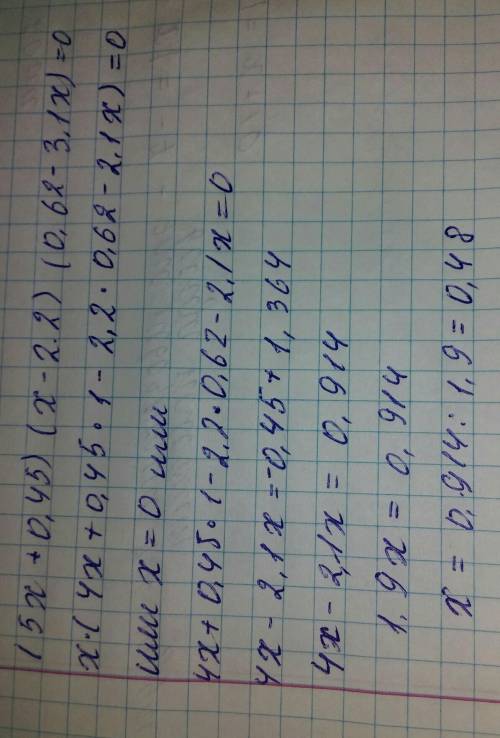 (5x+0,45) (x-2.2) (0,62-3,1x)=0
x·(4x+0,45·1-2,2·0,62-2,1x)=0
или x=0 или
4x+0,45·1-2,2·0,62-2,1x=0
4x-2,1x=-0,45+1,364
4x-2,1x=0,914
1,9x=0,914
x=0,914:1,9=0,48